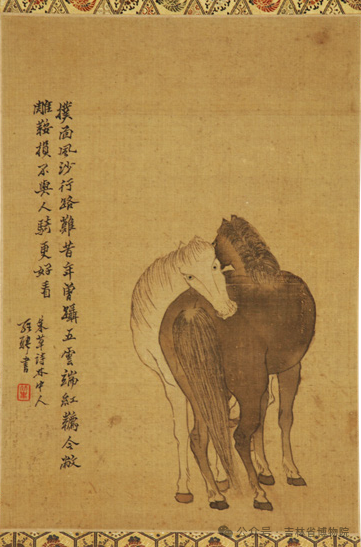 撲面風沙行路難昔年曾躡五雲端紅韉今敝
雕鞍損不與人騎更好看
朱草詩林中人
羅聘書
公众号 · 吉林省博物院